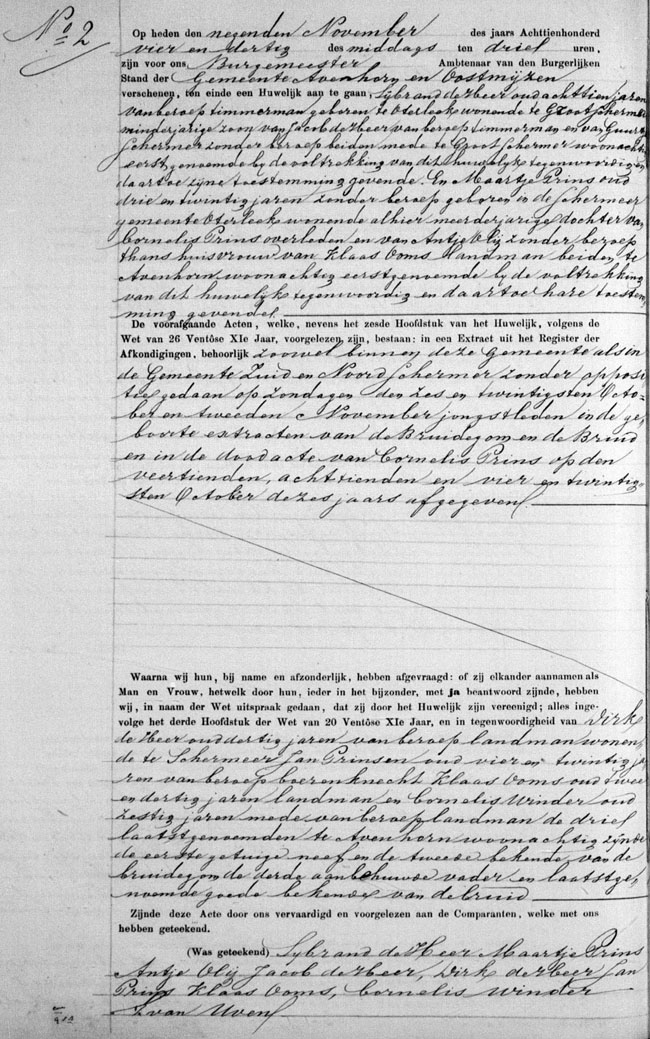 No 2
Op heden den negenden November des jaars Achttienhonderd
vier en dertig des middags ten drie uren,
zijn voor ons Burgemeester Ambtenaar van den Burgerlijken
Stand der Gemeente Avenhorn en Oostmijzen
verschenen, ten einde een Huwelijk aan te gaan, Sybrand de Heer oud achttien jaren
van beroep timmerman geboren te Oterleek wonende te Grootschermer
minderjarige zoon van Jacob de Heer van beroep timmerman en van Guurtje
Schermer zonder beroep beiden mede te Grootschermer woonachtig
eerstgenoemde bij de voltrekking van dit huwelijk tegenwoordig en
daartoe zijne toestemming gevende. En Maartje Prins oud
drie en twintig jaren zonder beroep geboren in de Schermeer
gemeente Oterleek wonende alhier meerderjarige dochter van
Cornelis Prins overleden en van Antje Olij zonder beroep
thans huisvrouw van Klaas Ooms landman beiden te
Avenhorn woonachtig eerstgenoemde bij de voltrekking
van dit huwelijk tegenwoordig en daartoe hare toestem
ming gevende
De voorafgaande Acten, welke, nevens het zesde Hoofdstuk van het Huwelijk, volgens de
Wet van 26 Ventôse XIe Jaar, voorgelezen zijn, bestaan: in een Extract uit het Register der
Afkondigingen, behoorlijk zoowel binnen deze Gemeente als in
de Gemeente Zuid en Noord Schermer zonder opposi
tie gedaan op Zondagen den zes en twintigsten Octo=
ber en tweeden November jongstleden in de ge
boorte extracten van de Bruidegom en de Bruid
en in de doodacte van Cornelis Prins op den
veertienden, achttienden en vier en twintig=
sten October dezes jaars afgegeven
Waarna wij hun, bij name en afzonderlijk, hebben afgevraagd: of zij elkander aannamen als
Man en Vrouw, hetwelk door hun, ieder in het bijzonder, met ja beantwoord zijnde, hebben
wij, in naam der Wet uitspraak gedaan, dat zij door het Huwelijk zijn vereenigd; alles inge-
volge het derde Hoofdstuk der Wet van 20 Ventôse XIe Jaar, en in tegenwoordigheid van Dirk
de Heer oud dertig jaren van beroep landman wonen
de te Schermeer Jan Prinsen oud vier en twintig ja
ren van beroep boerenknecht Klaas Ooms oud twee
en dertig jaren landman en Cornelis Winder oud
zestig jaren mede van beroep landman de drie
laatstgenoemden te Avenhorn woonachtig zijnde
de eerste getuige neef en de tweede bekende van de
bruidegom de derde aanbehuwde vader en laatstge
noemde goede bekende van de bruid
Zijnde deze Acte door ons vervaardigd en voorgelezen aan de Comparanten, welke met ons
hebben geteekend.
(Was geteekend) Sybrand de Heer Maartje Prins
Antje Olij Jacob de Heer, Dirk de Heer Jan
Prins Klaas Ooms, Cornelis Winder
J van Uven